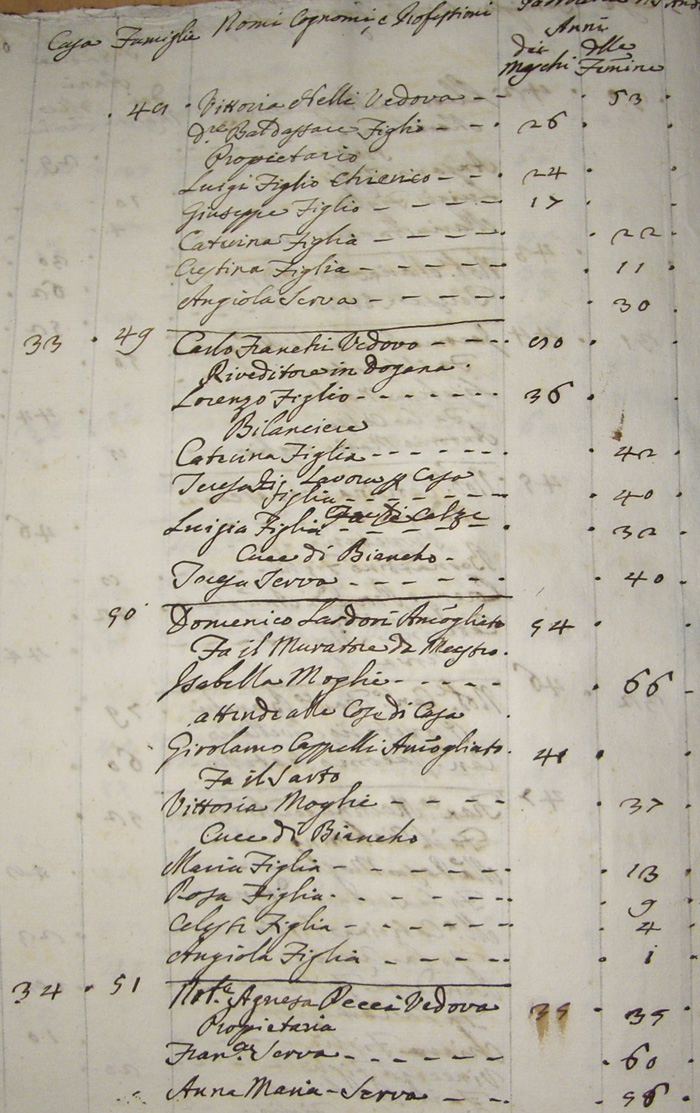 Casa Famiglie Nomi Cognomi, e Professioni
Anni
dei Maschi delle Femine
Vittoria Nelli Vedova - - 53
Dre. Baldassare Figlio - - 26
Proprietario
Luigi Figlio Chierico - - 24
Giuseppe Figlio - - - - 17
Caterina Figlia - - - - 22
Cristina Figlia - - - - 11
Angiola Serva - - - - - 30
33 · 49 Carlo Franchi Vedovo - - -
Riveditore in Dogana
Lorenzo Figlio - - - - - - 36
Bilanciere
Caterina Figlia - - - - - - 42
Teresa Lavora p Casa
figlia - - - - - - 40
Luigia Figlia 32
Cuce di Biancho -
Teresa Serva - - - - - 40
50 Domenico Lardori Amogliato 54
Fa il Muratore da Maestro
Isabella Moglie - - - - - 66
attende alle Cose di Casa
Girolamo Cappelli Amogliato 41
Fa il Sarto
Vittoria Moglie - - - - - 37
Cuce di Biancho
Maria Figlia - - - - - - 13
Rosa Figlia - - - - - - 9
Celeste Figlia - - - - - 4
Angiola Figlia - - - - - 1
34 · 51 Nob.e Agnesa Pecci Vedova 35
Proprietaria
Fran.ca Serva - - - - - - 60
Anna Maria - Serva - - - 56